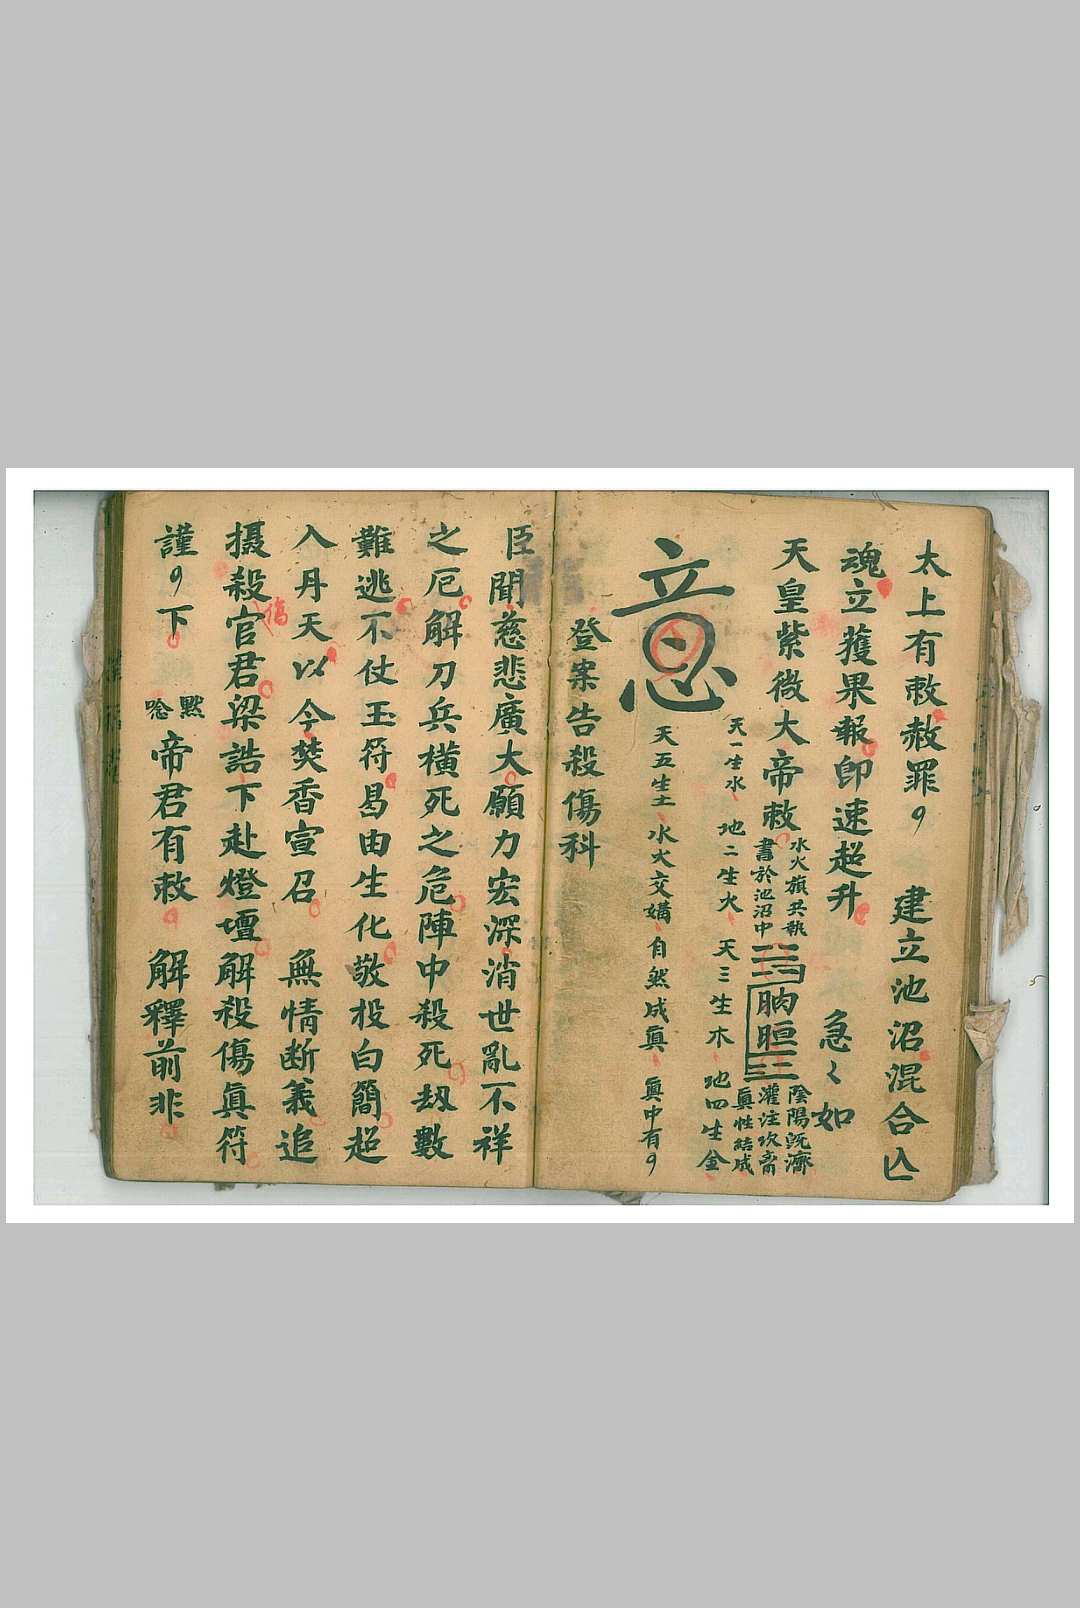 太上有敕赦罪 建立池沼混合亾
魂立獲果報即速超升 急〻如
天皇紫微大帝敕
水火 共執
書於池沼中
陰陽既濟
灌注坎离
真性結成
天一生水 地二生火 天三生木 地四生金
天五生土 水火交媾 自然成真 真中有
登案告殺傷科
臣聞慈悲廣大願力宏深消世亂不祥
之厄解刀兵橫死之危陣中殺死刼數
難逃不仗玉符曷由生化敬投白簡超
入丹天以今焚香宣召 無情断義追
摄殺官君梁誥下赴燈壇解殺傷眞符
謹 下 默唸 帝君有敕 解釋前非